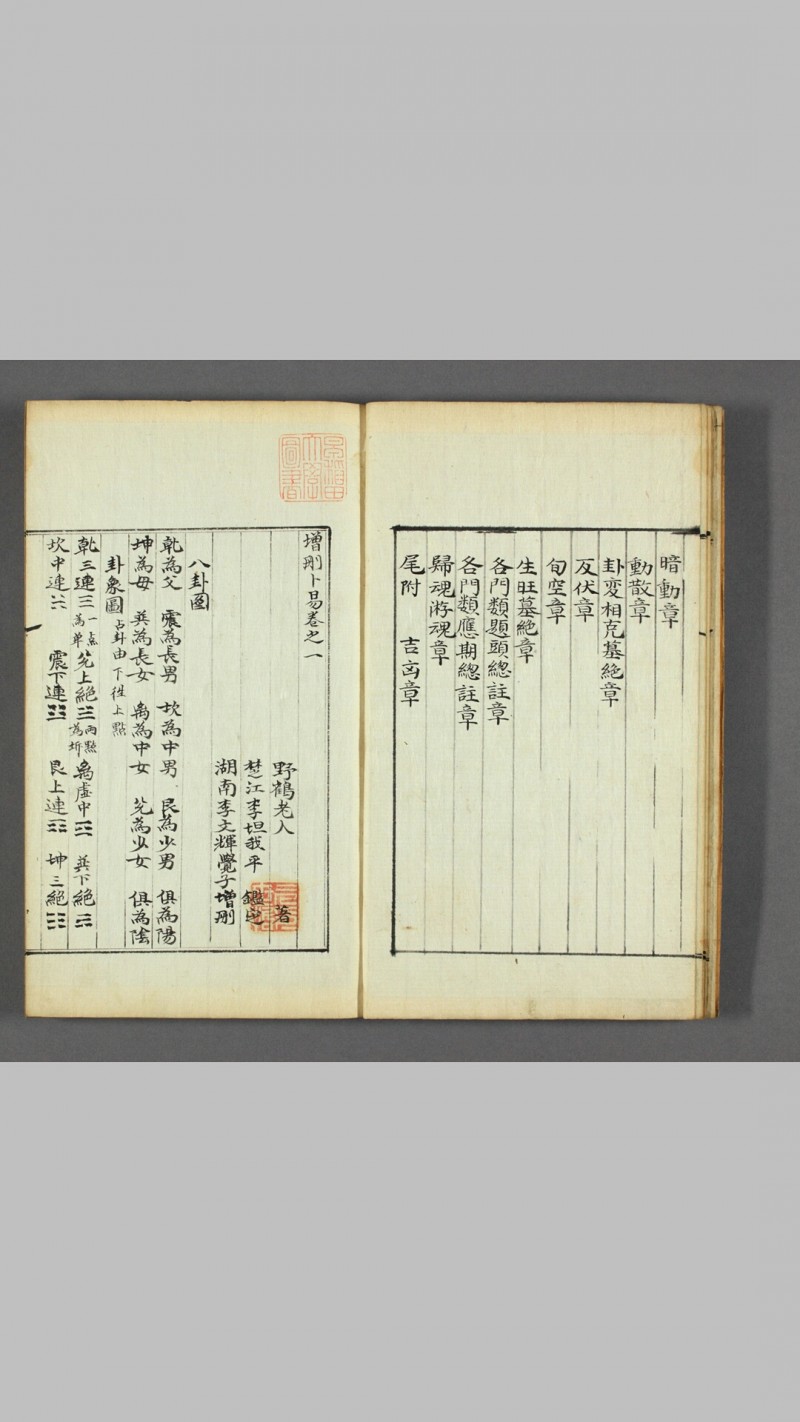 暗動章
動散章
卦変相克墓絶章
反伏章
旬空章
生旺墓絶章
各門類題頭總註章
各門類應期總註章
歸魂游魂章
尾附 吉凶章
增刪卜易卷之一
野鶴老人 著
楚江李坦我平 鑑定
湖南李文輝覺子增刪
八卦圖
乾為父 震為長男 坎為中男 艮為少男 俱為陽
坤為母 巽為長女 离為中女 兌為少女 俱為陰
卦象圖 占卦由下徃上點
乾三連☰ 一点為单 兌上絕☱ 两點為坼 离虛中☲ 巽下絕☴
坎中連☵ 震下連☳ 艮上連☶ 坤三絕☷
早稻田大學圖書